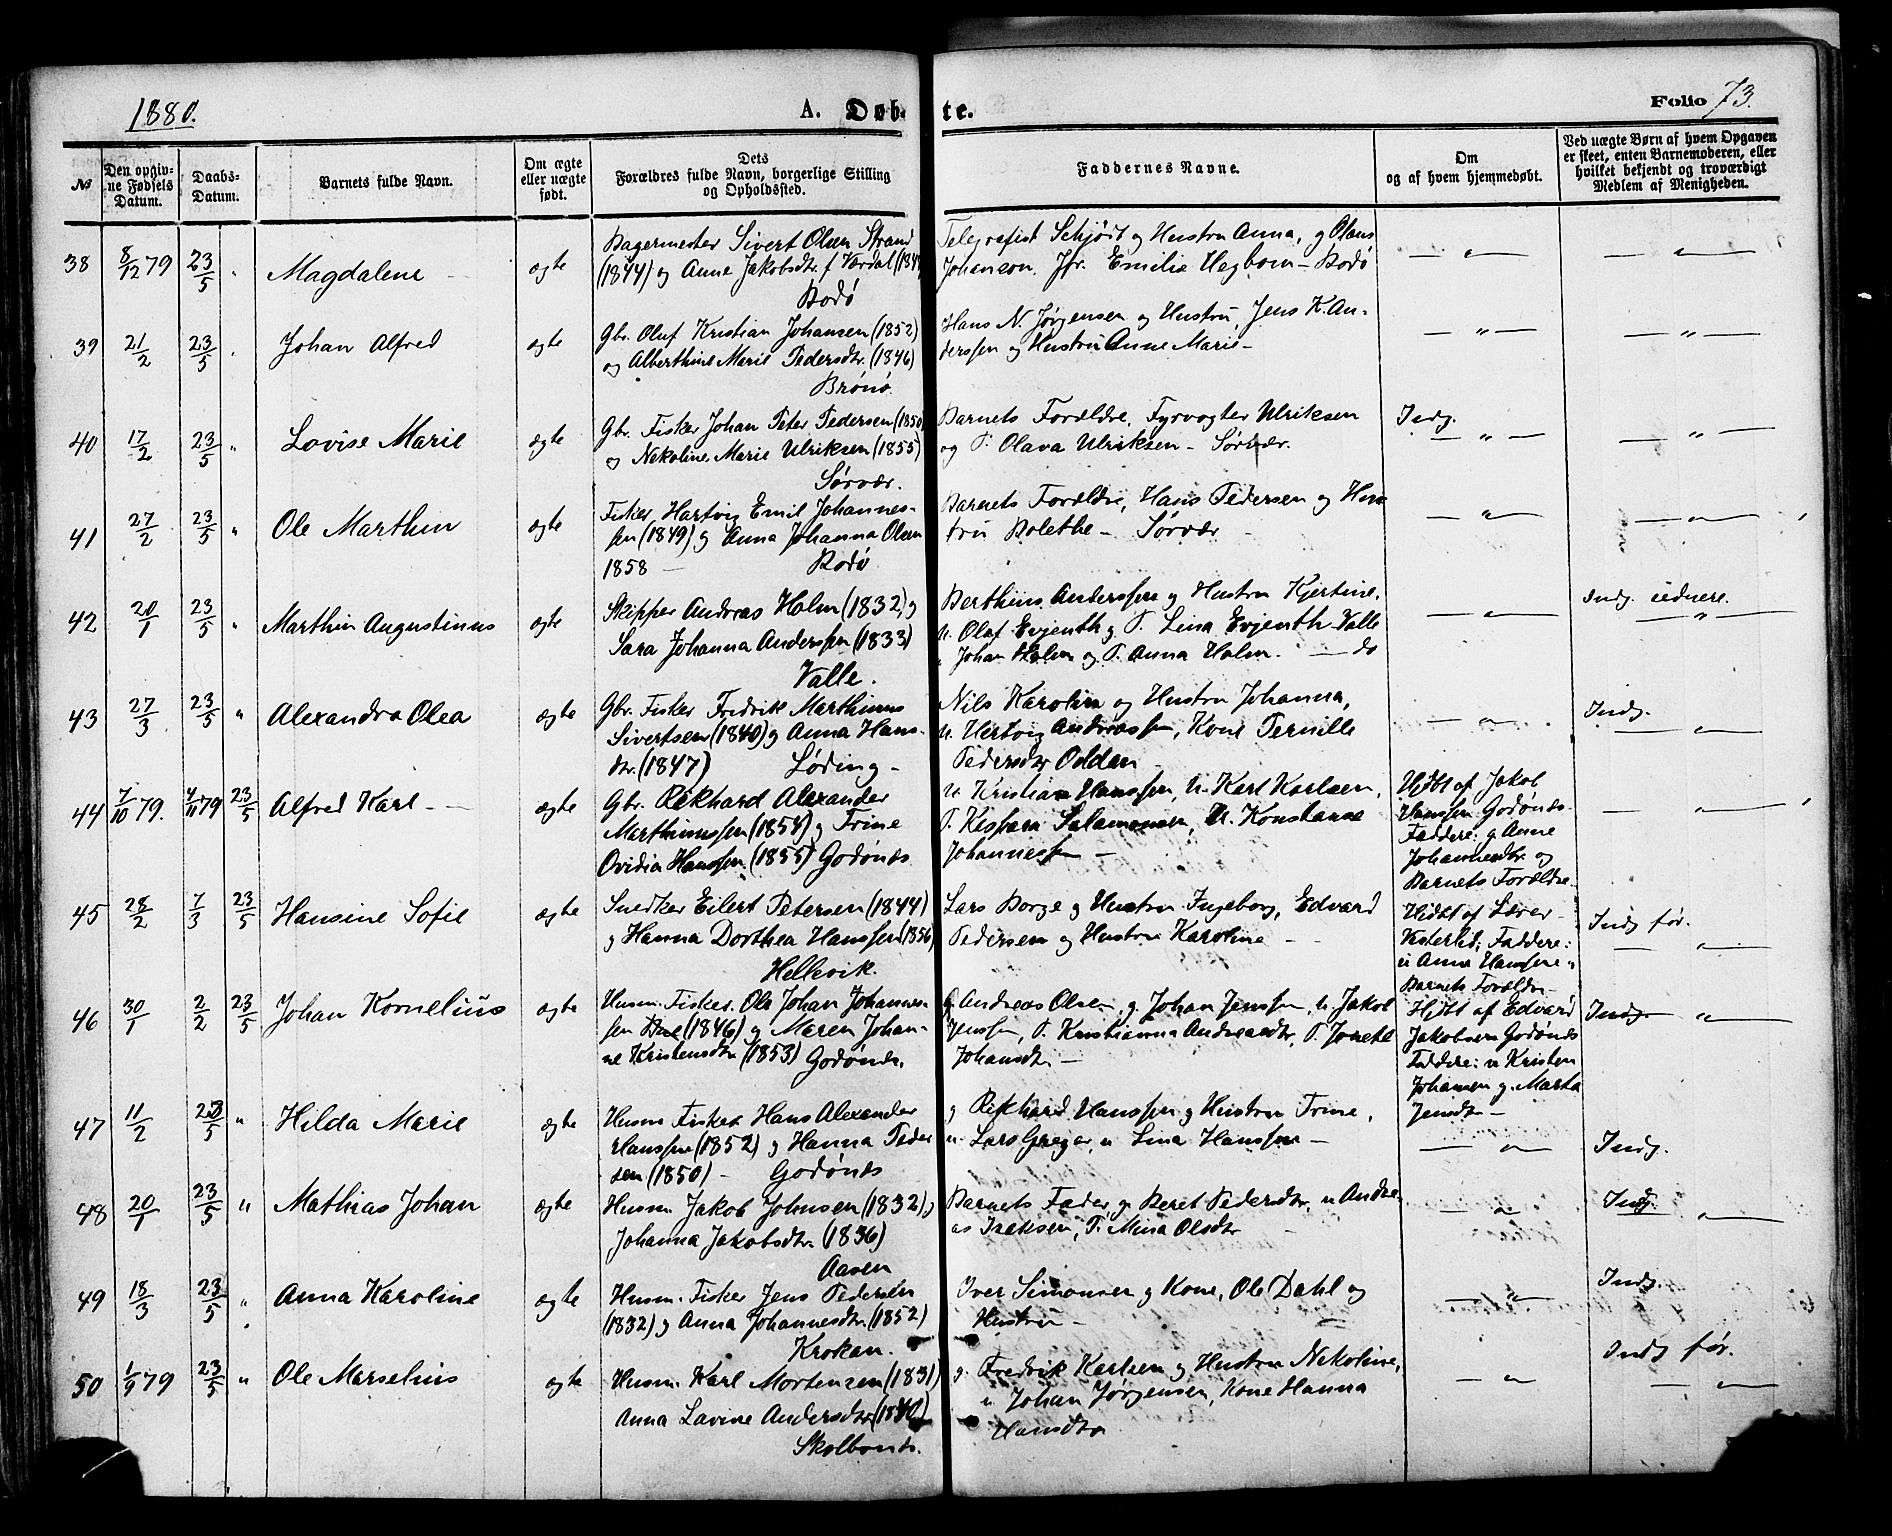 1880.
A. Døbte.
Folio 73.
№
Den opgivne Fødsels Datum.
Daabs-Datum.
Barnets fulde Navn.
Om ægte eller uægte født.
Dets Forældres fulde Navn, borgerlige Stilling og Opholdssted.
Faddernes Navne.
Om og af hvem hjemmedøbt.
Ved uægte Børn af hvem Opgaven er skeet, enten Barnemoderen, eller hvilket bekjendt og troværdigt Medlem af Menigheden.
38 8/12 79 23/5 " Magdalene ægte
Bagermester Sivert Olsen Strand
(1844) og Anne Jakobsdtr. f Vardal
Bodø
Telegrafist Schjødt og Hustru Anna, g Olaus
Johanson, Jfr. Emilie Hegbom - Bodø
39 21/2 23/5 " Johan Alfred ægte
Gbr. Oluf Kristian Johansen (1852)
og Alberthine Marie Pedersdtr. (1846)
Brønø.
Hans N. Jørgensen og Hustru, Jens K. An-
derssen og Hustru Anne Marie -
40 17/2 23/5 " Lovise Marie ægte
Gbr. Fisker Johan Peter Pedersen (1850)
og Nekoline Marie Ulriksen (1855)
Sørvær.
Barnets Forældre, Fyrvogter Ulriksen
og P. Olava Ulriksen - Sørvær.
Indg.
41 27/2 23/5 " Ole Marthin ægte
Fisker Hartvig Emil Johannes-
sen (1849) g Anna Johanna Olsen
1858 - Bodø
Barnets Forældre, Hans Pedersen og Hus
tru Bolethe - Sørvær -
42 20/1 23/5 " Marthin Augustinus ægte
Skipper Andreas Holm (1832) g
Sara Johanna Anderssen (1833)
Valle.
Berthius Anderssen og Hustru Kjertine,
U. Olaf Evjenth g P. Lina Evjenth - Valle
" Johan Holm og P. Anna Holm. - do
Indg.
43 27/3 23/5 " Alexandra Olea ægte
Gbr. Fisker Fredrik Marthinus
Sivertsen (1840) g Anna Hans-
dtr. (1847) Løding -
Nils Karolin og Hustru Johanna,
U. Hertvig Andreassen, Kone Pernille
Pedersdtr Oddan -
Indg.
44 7/10 79. 4/11 79 23/5 Alfred Karl - ægte
Gbr. Rikhard Alexander
Marthinussen (1858) g Trine
Ovidia Hanssen (1855) Godønes
U. Kristian Hanssen, U. Karl Karlsen,
P. Kaspara Salamonsen, U. Konstanse
Johannessen -
Hjdbt af Jakob
Hanssen Godønes
Faddere: g Anne
Johannesdtr. og
Barnets Forældre.
45 28/2 7/3 23/5 Hansine Sofie ægte
Snedker Eilert Petersen (1844)
g Hanna Dorthea Hanssen (1856)
Hellevik.
Lars Borge g Hustru Ingeborg, Edvard
Pedersen og Hustru Karoline -
Hjdbt af Lærer
Vesterlid; Faddere:
u Anna Hanssen
Barnets Forældre
Indg før.
46 30/1 2/2 23/5 Johan Kornelius ægte
Husm. Fisker. Ole Johan Johannes-
sen (1846) g Maren Johan-
ne Kristensdtr (1853) Godønes.
g Andreas Olsen, g Johan Jenssen, U. Jakob
Jenssen, P. Kristianna Andreasdtr, P. Jonette
Johansdtr. -
Hjdbt af Edvard
Jakobsen Godønes
Faddere: u Kristen
Johansen g. Marta
Jensdtr -
Indg
47 11/2 23/5 " Hilda Marie ægte
Husm Fisker Hans Alexander
Hanssen (1852) g Hanna Peder
sen (1850) - Godønes
g Rikhard Hanssen g Hustru Trine,
u Lars Greger, u Lina Hanssen -
Indg.
48 20/1 23/5 " Mathias Johan ægte
Husm. Jakob Johnsen (1832) g
Johanna Jakobsdtr. (1836)
Aasen
Barnets Fader g Beret Pedersdtr. u Andre-
as Isaksen, P. Mina Olsdtr
Indg.
49 18/3 23/5 " Anna Karoline ægte
Husm. Fisker Jens Pedersen
(1832) g Anna Johannesdtr. (1852)
Krokan.
Iver Simonsen g Kone, Ole Dahl og
Hustru -
Indg.
50 1/9 79 23/5 " Ole Marselius ægte
Husm. Karl Mortensen (1831)
Anna Lavine Andersdtr (1840)
Skolbones.
g. Fredrik Karlsen g Hustru Nekoline,
u Johan Jørgensen, Kone Hanna
Hansdtr
Indg før.